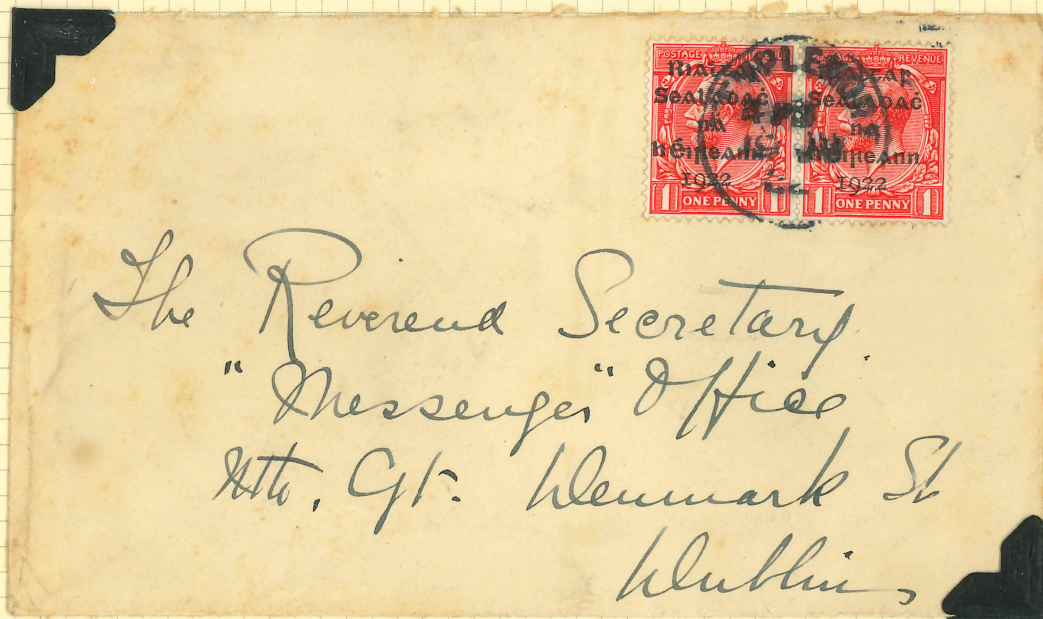 POSTAGE REVENUE
Rialtar
Sealadaċ
na
hÉireann
1922
1 ONE PENNY 1
POSTAGE REVENUE
Rialtar
Sealadaċ
na
hÉireann
1922
1 ONE PENNY 1
TEMPLEMORE
22
The Reverend Secretary
"Messenger" Office
Nth. Gt. Denmark St
Dublin